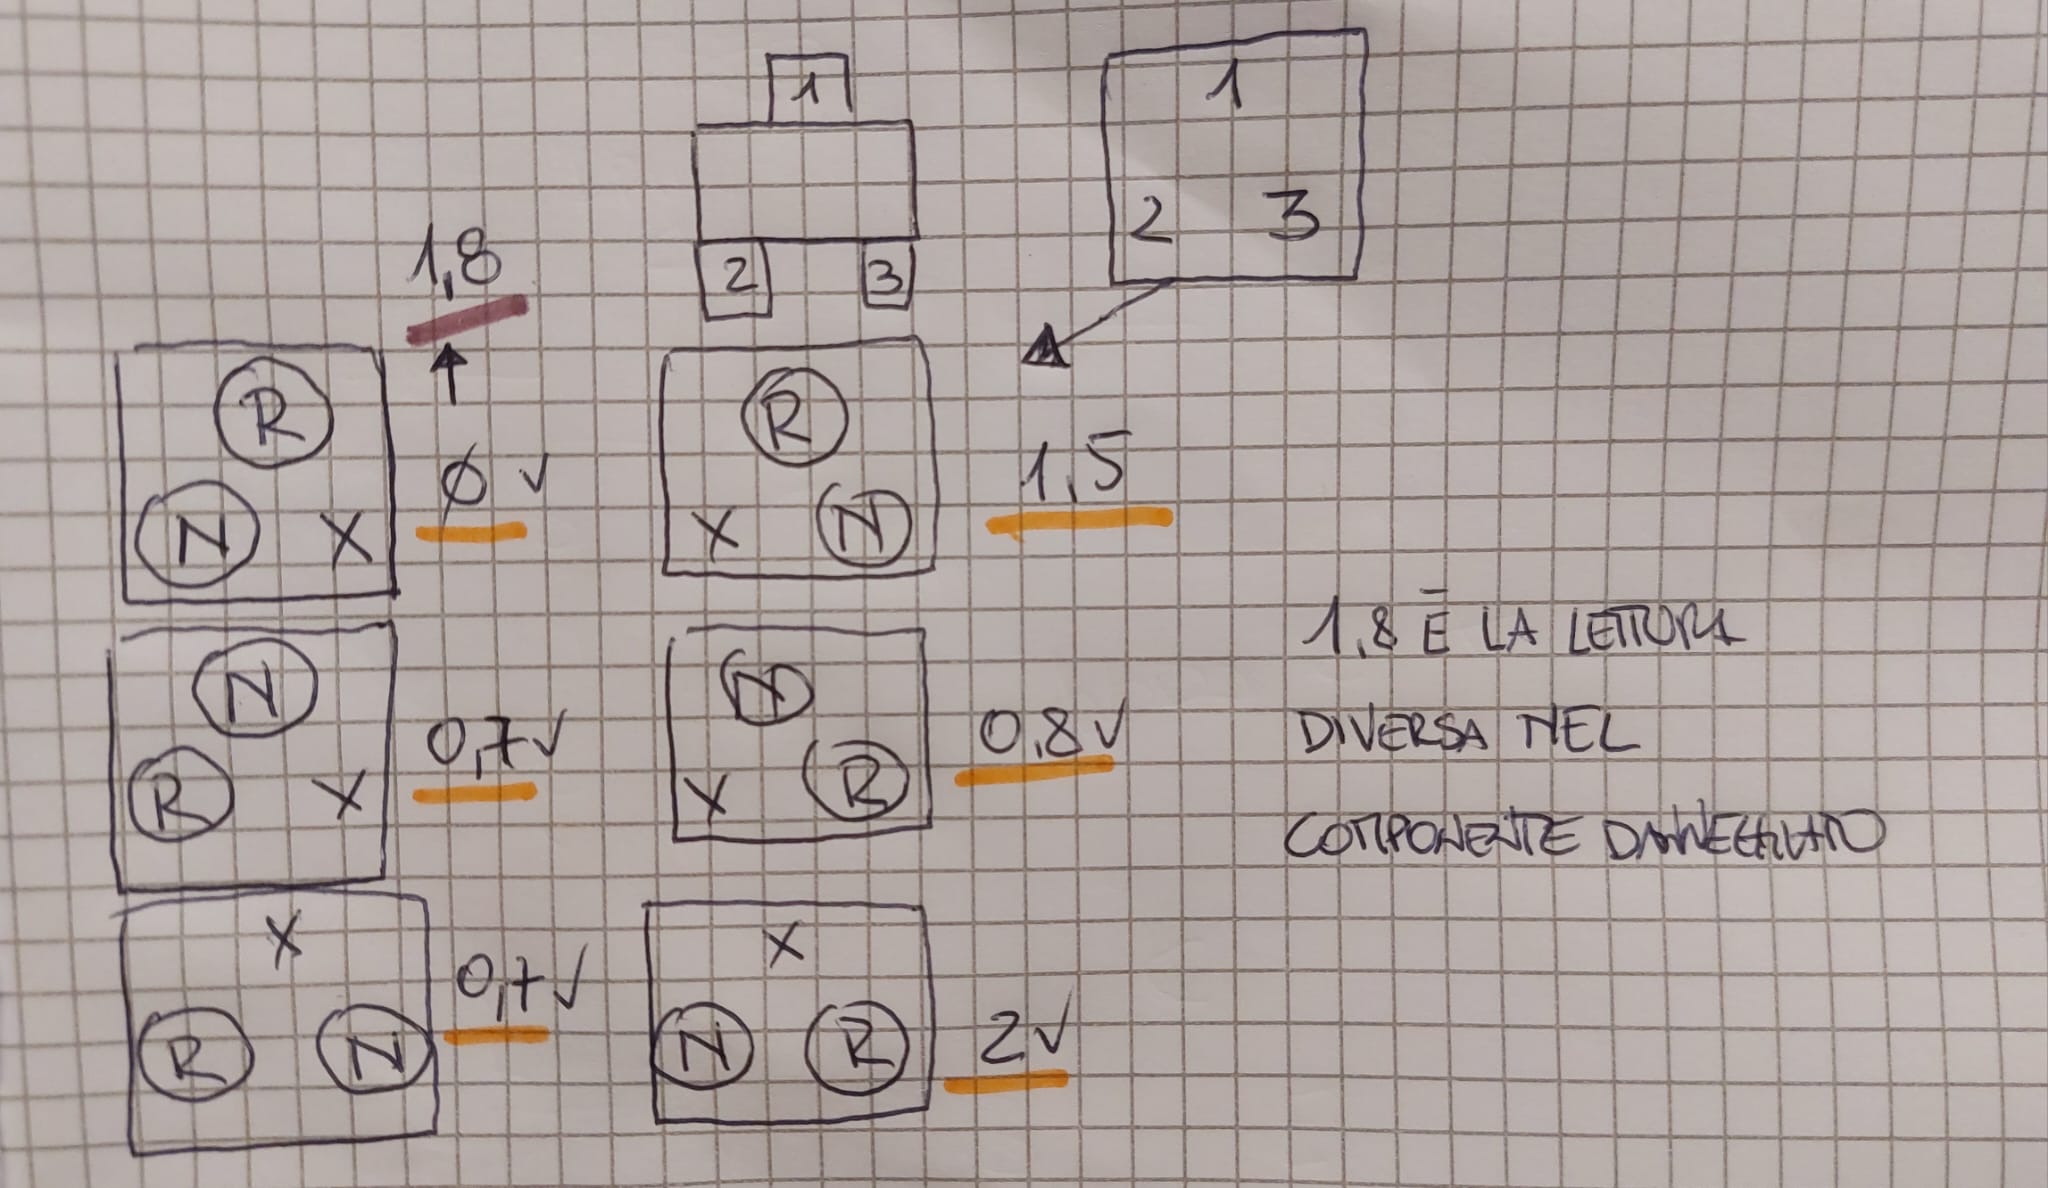 1
1
2 3
2 3
1,8
R
N X
Ø V
R
X N
1,5
N
R X
0,7 V
N
X R
0,8 V
1,8 È LA LETTURA
DIVERSA NEL
COMPONENTE DANNEGGIATO
X
R N
0,7 V
X
N R
2 V